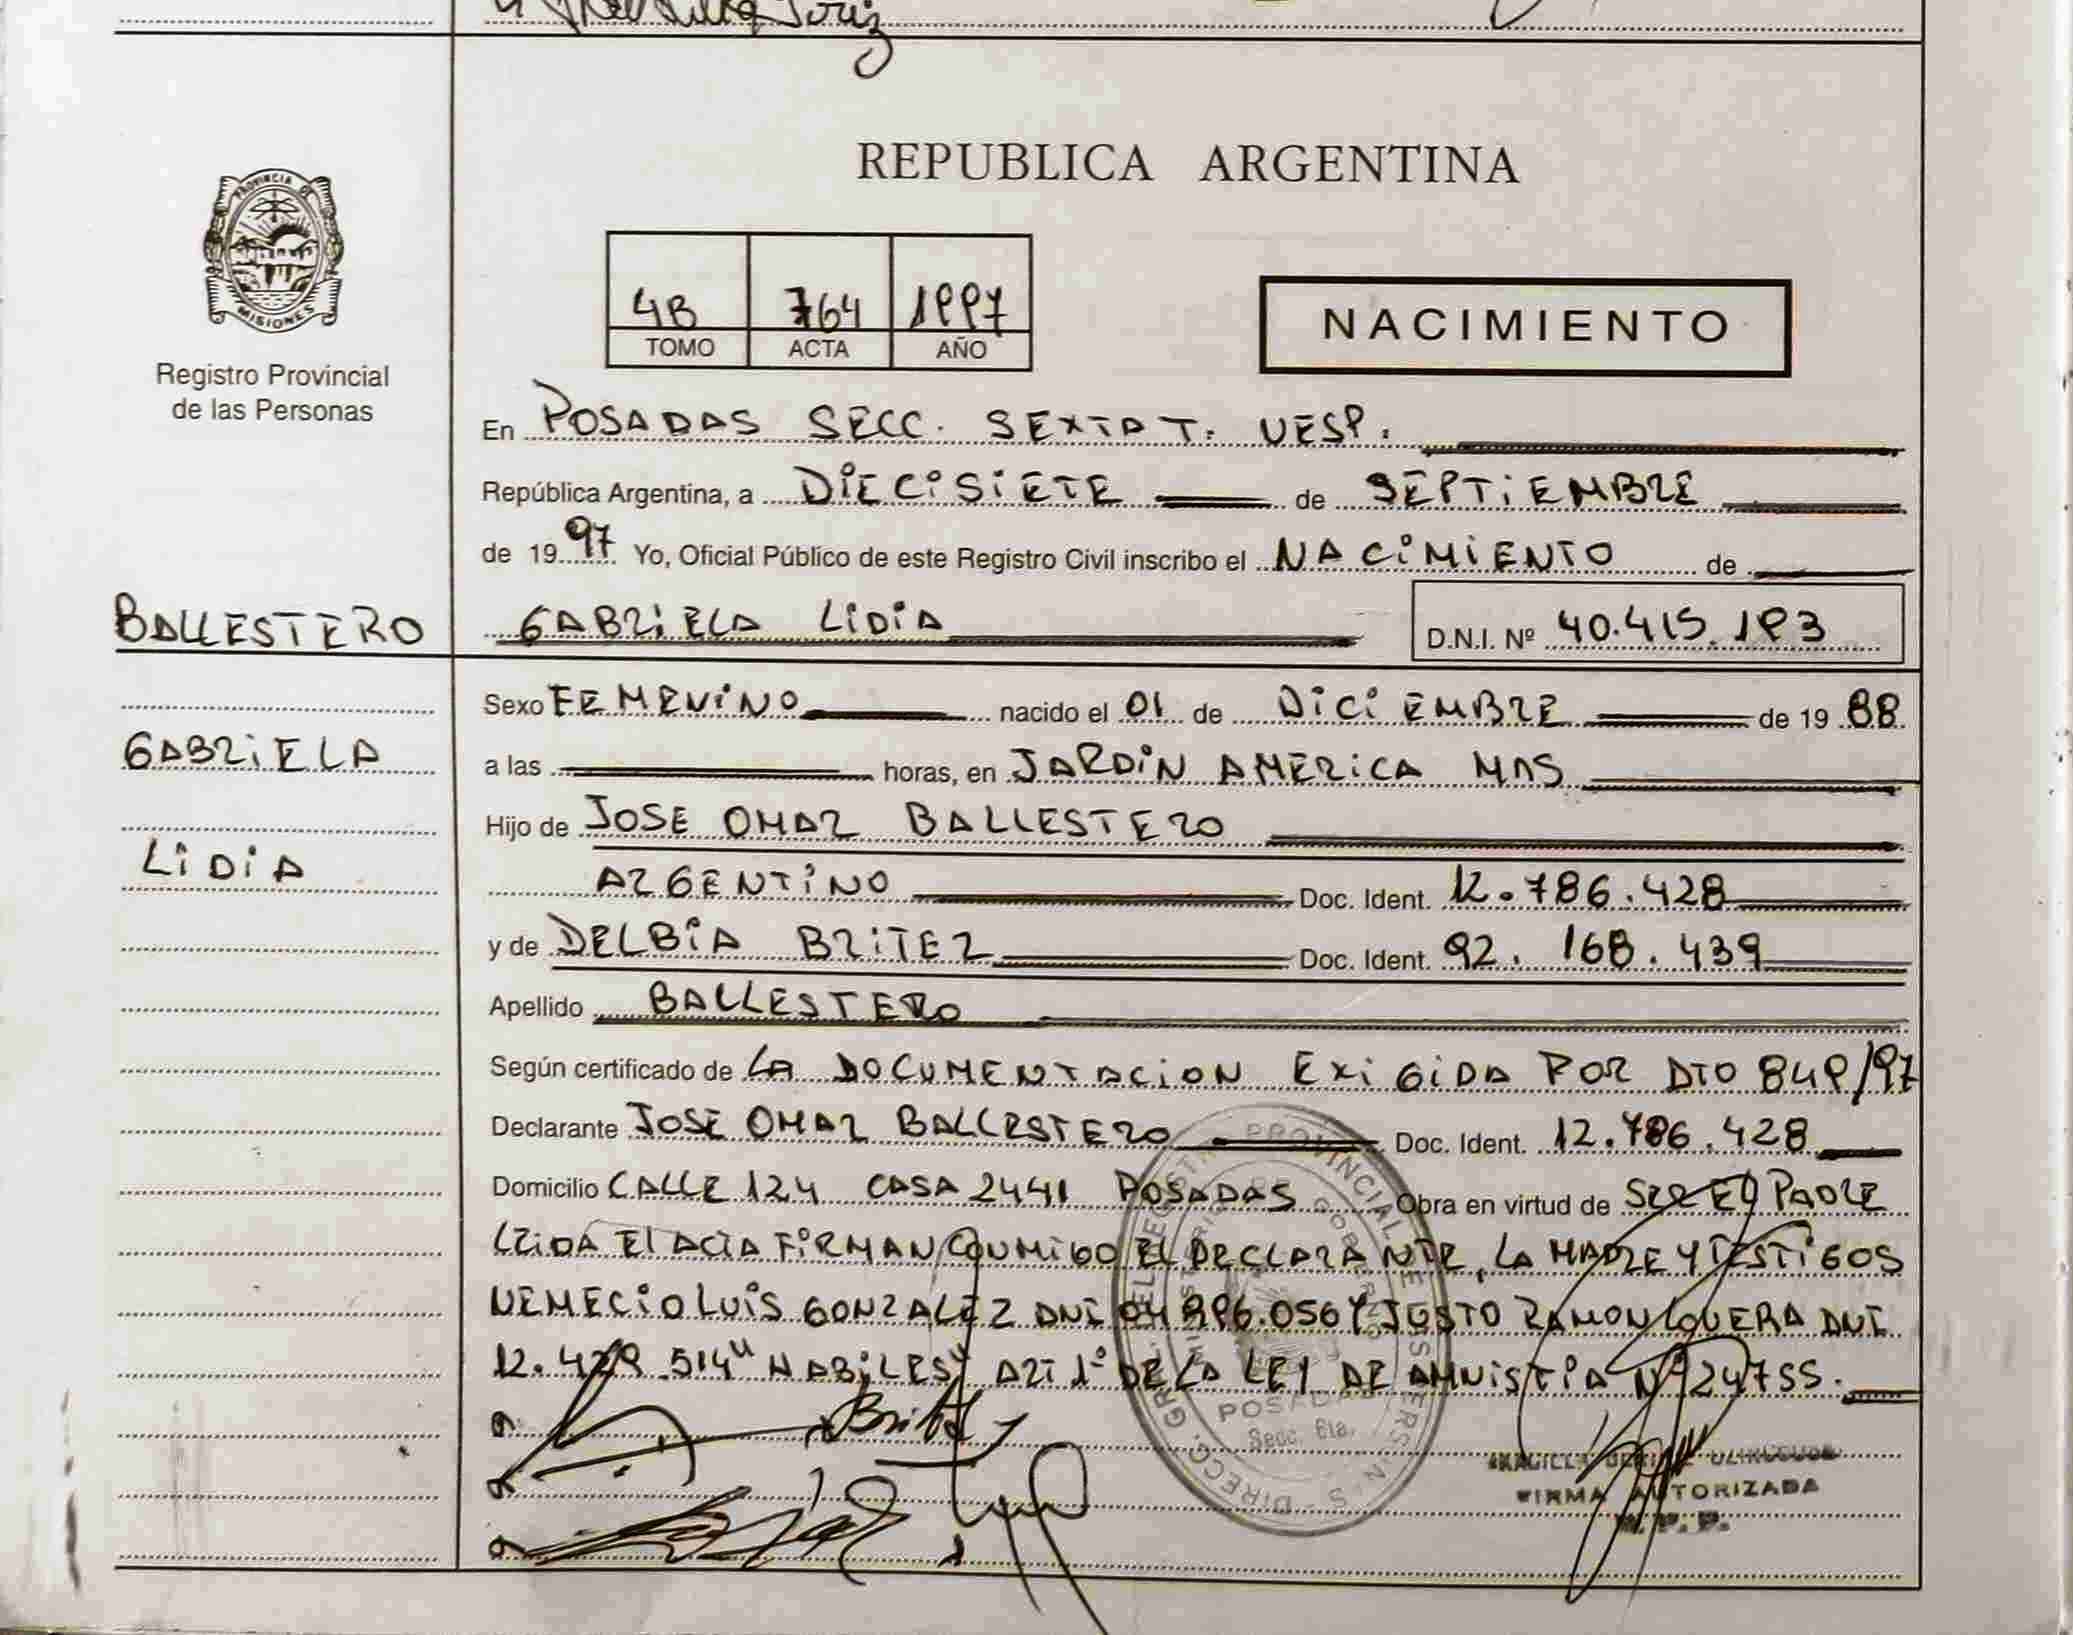 REPUBLICA ARGENTINA
PROVINCIA DE
MISIONES
Registro Provincial
de las Personas
4B 764 1997
TOMO ACTA AÑO
NACIMIENTO
En POSADAS SECC. SEXTA T. VESP.
República Argentina, a DIECISIETE de SEPTIEMBRE
de 1997 Yo, Oficial Público de este Registro Civil inscribo el NACIMIENTO de
BALLESTERO
GABRIELA LIDIA D.N.I. Nº 40.415.193
GABRIELA
LIDIA
Sexo FEMENINO nacido el 01 de DICIEMBRE de 1988
a las horas, en JARDIN AMERICA MNS
Hijo de JOSE OMAR BALLESTERO
ARGENTINO Doc. Ident. 12.786.428
y de DELBIA BRITEZ Doc. Ident. 92.168.439
Apellido BALLESTERO
Según certificado de LA DOCUMENTACION EXIGIDA POR DTO 849/97
Declarante JOSE OMAR BALLESTERO Doc. Ident. 12.786.428
Domicilio CALLE 124 CASA 2441 POSADAS Obra en virtud de SER EL PADRE
LEIDA EL ACTA FIRMAN CONMIGO EL DECLARANTE, LA MADRE Y TESTIGOS
NEMECIO LUIS GONZALEZ DNI Y JUSTO RAMON DNI
HABILES ART 1º DE LA LEY DE AMNISTIA Nº 24755.
POSADAS
Secc. 6ta.
FIRMA AUTORIZADA